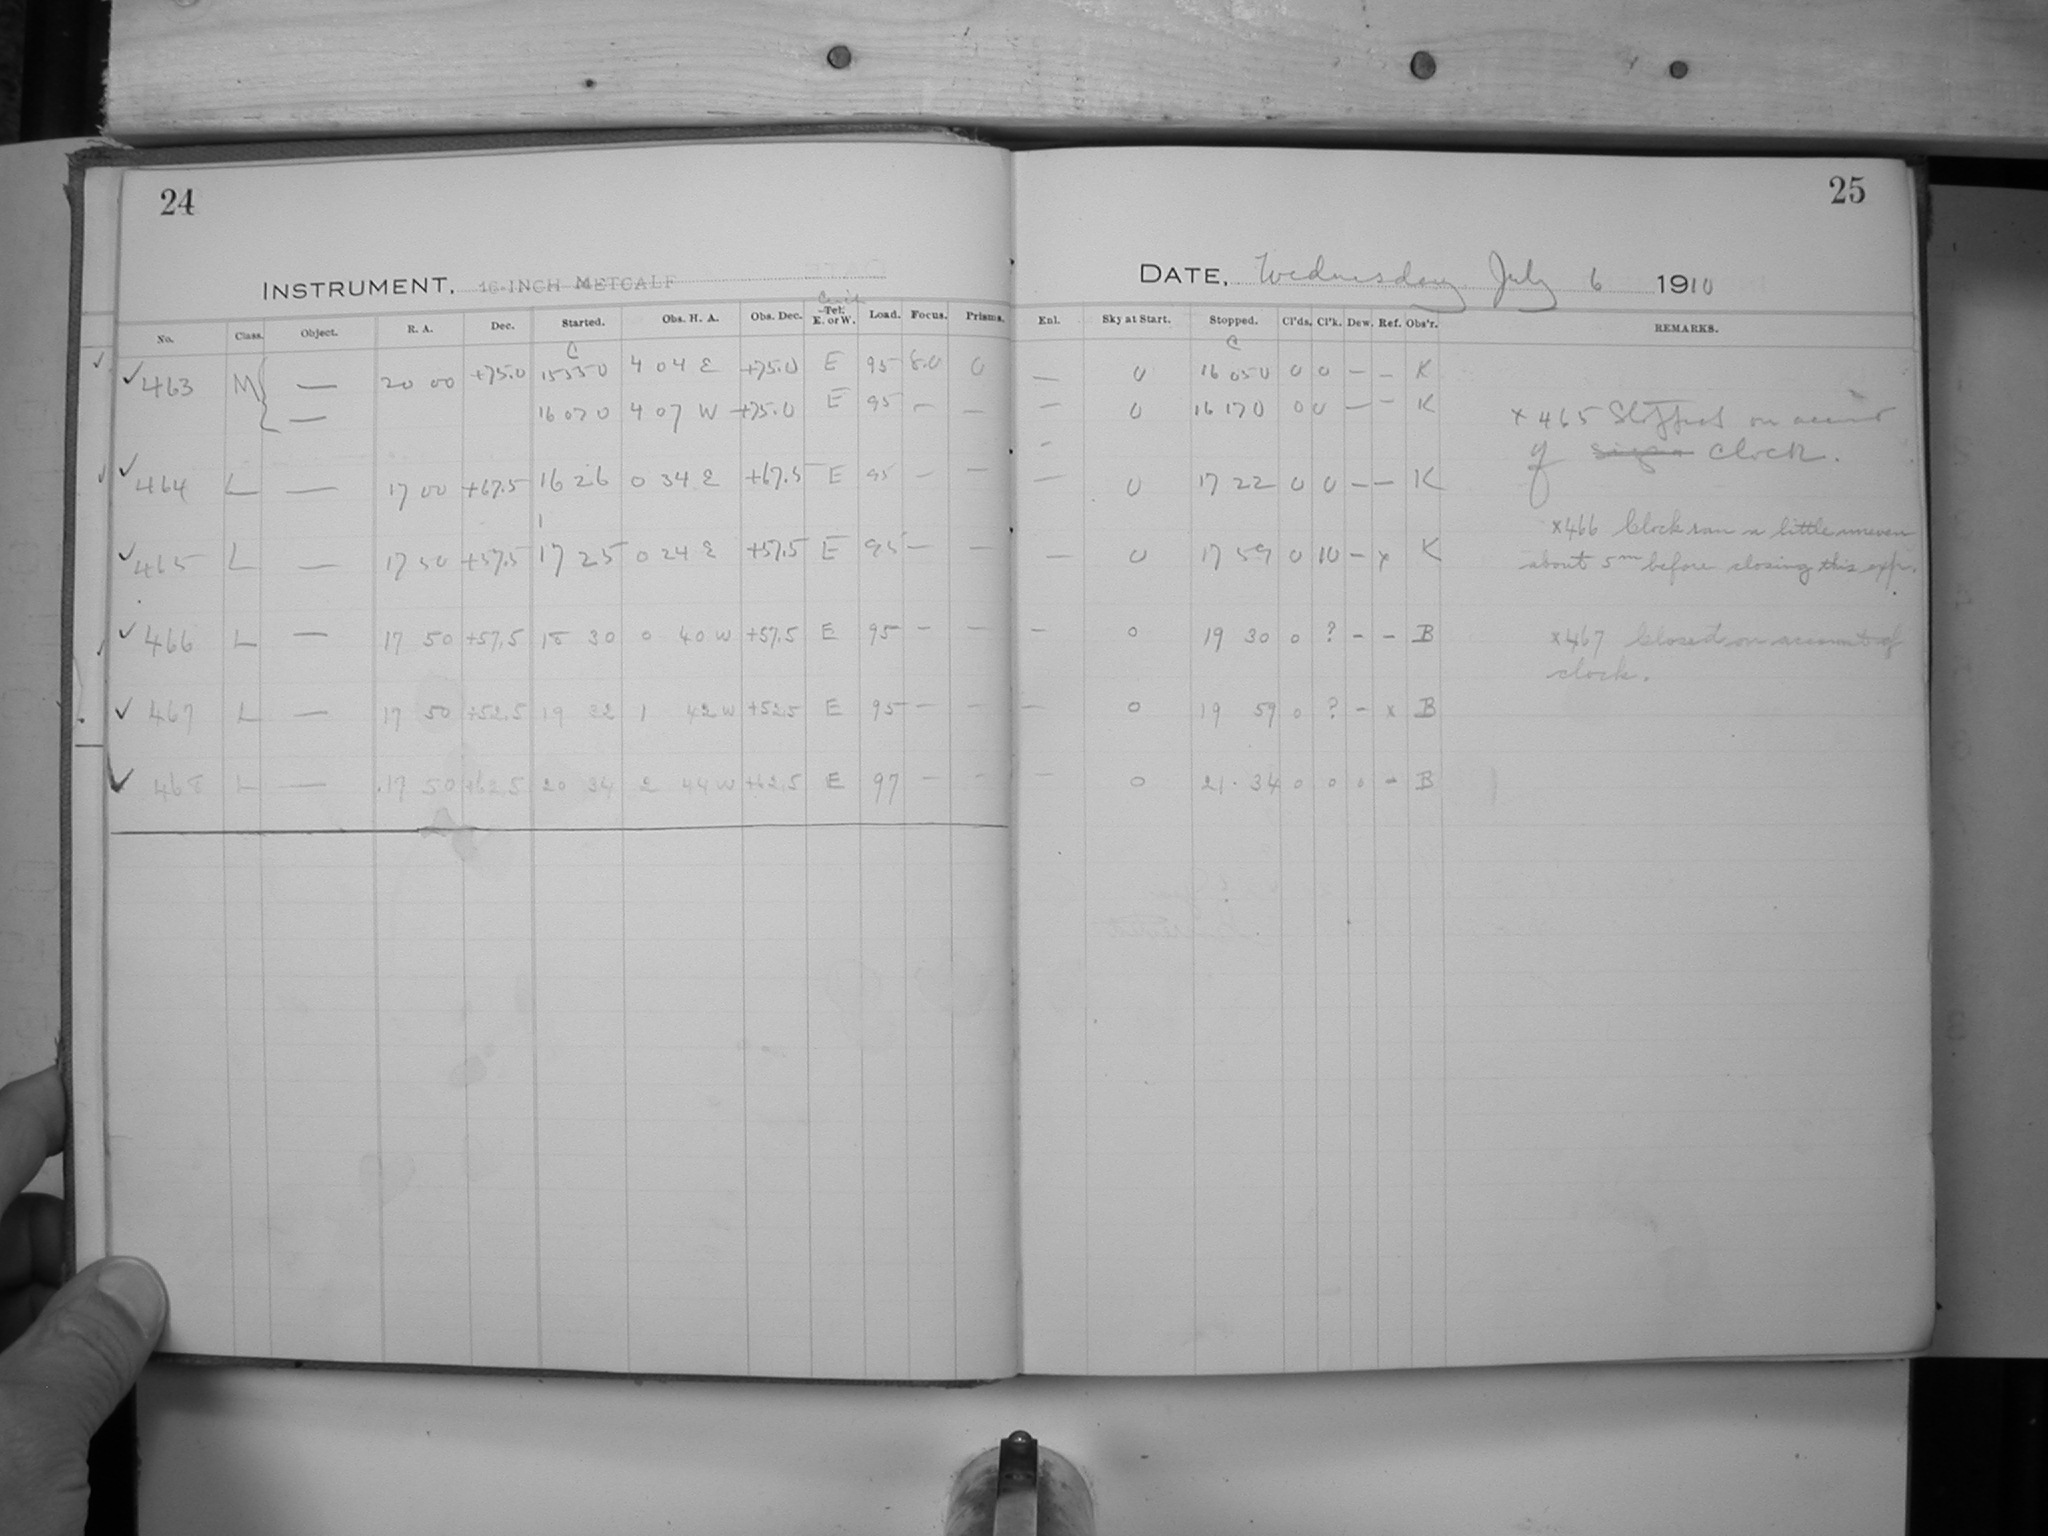 24
INSTRUMENT. 16-INCH METCALF
No. Class. Object. R. A. Dec. Started. Obs. H. A. Obs. Dec. Tel. E. or W. Load. Focus. Prisms.
C
463 M — 20 00 +75.0 15 55 0 4 04 E +75.0 E 95 8.0 0
— 16 07 0 4 07 W +75.0 E 95 — —
464 L — 17 00 +67.5 16 26 0 34 E +67.5 E 95 — —
465 L — 17 50 +57.5 17 25 0 24 E +57.5 E 95 — —
466 L — 17 50 +57.5 18 30 0 40 W +57.5 E 95 — —
467 L — 17 50 +52.5 19 32 1 42 W +52.5 E 95 — —
468 L — 17 50 +62.5 20 34 2 44 W +62.5 E 97 — —
25
DATE, Wednesday July 6 1910
Enl. Sky at Start. Stopped. Cl'ds. Cl'k. Dew. Ref. Obs'r. REMARKS.
C
— 0 16 05 0 0 0 — — K
— 0 16 17 0 0 0 — — K
— 0 17 22 0 0 — — K
— 0 17 59 0 10 — x K
— 0 19 30 0 ? — — B
— 0 19 59 0 ? — x B
— 0 21 34 0 0 0 — B
x 465 Stopped on account
of clock.
x466 Clock ran a little uneven
about 5m before closing this exp.
x467 Closed on account of
clock.